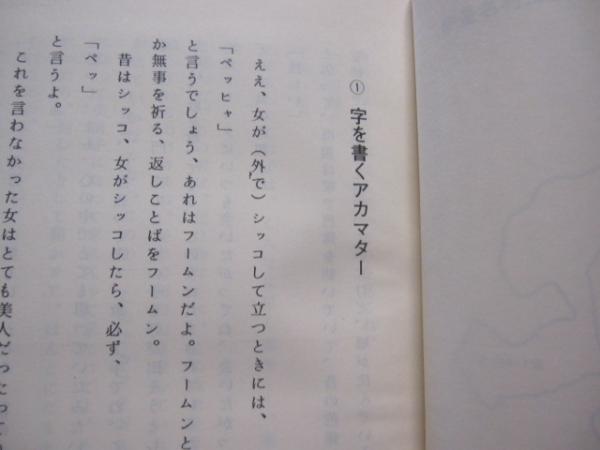 ① 字を書くアカマター
ええ、女が（外で）シッコして立つときには、
「ペッヒャ」
と言うでしょう、あれはフームンだよ。フームンと
か無事を祈る、返しことばをフームン。
昔はシッコ、女がシッコしたら、必ず、
「ペッ」
と言うよ。
これを言わなかった女はとても美人だったって